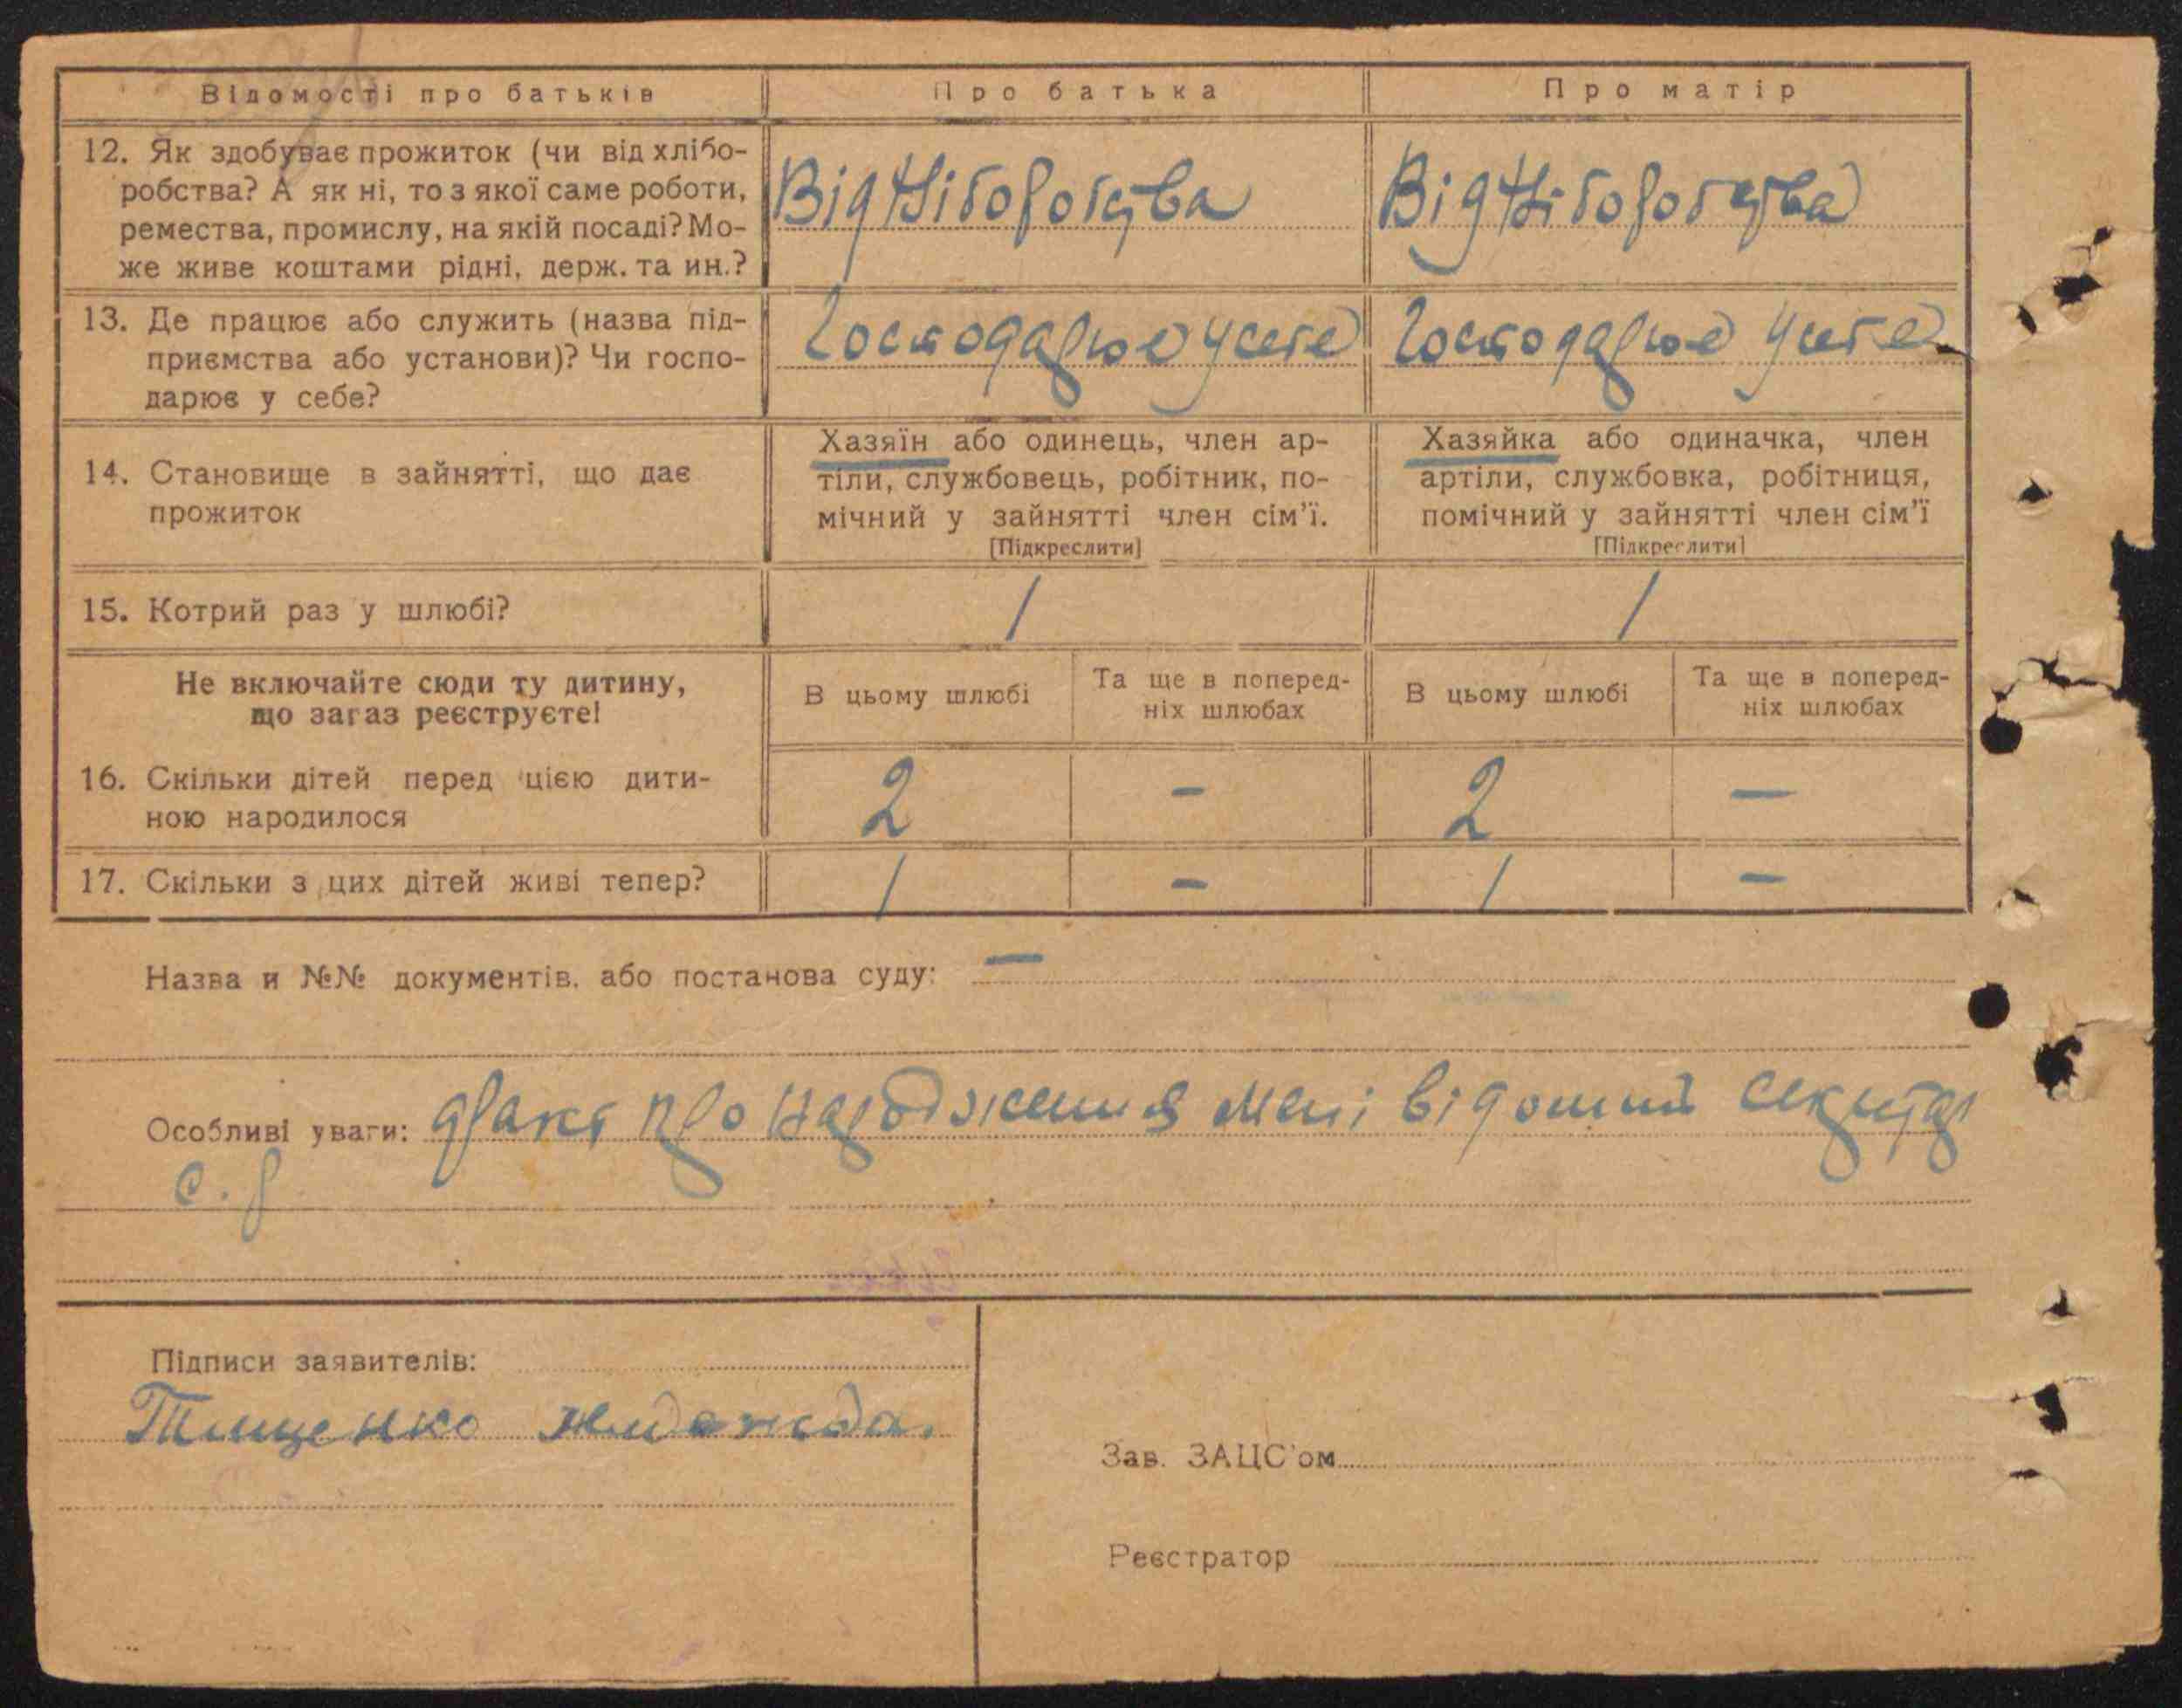 Відомості про батьків
Про батька
Про матір
12. Як здобуває прожиток (чи від хлібо-
робства? А як ні, то з якої саме роботи,
ремества, промислу, на якій посаді? Мо-
же живе коштами рідні, держ. та ин.?
Від хліборобства
Від хліборобства
13. Де працює або служить (назва під-
приємства або установи)? Чи госпо-
дарює у себе?
Господарює у себе
Господарює у себе
14. Становище в зайнятті, що дає
прожиток
Хазяїн або одинець, член ар-
тіли, службовець, робітник, по-
мічний у зайнятті член сім'ї.
[Підкреслити]
Хазяйка або одиначка, член
артіли, службовка, робітниця,
помічний у зайнятті член сім'ї
[Підкреслити]
15. Котрий раз у шлюбі?
1
1
Не включайте сюди ту дитину,
що зараз реєструєте!
В цьому шлюбі
Та ще в поперед-
ніх шлюбах
В цьому шлюбі
Та ще в поперед-
ніх шлюбах
16. Скільки дітей перед цією дити-
ною народилося
2
-
2
-
17. Скільки з цих дітей живі тепер?
1
-
1
-
Назва и №№ документів, або постанова суду: -
Особливі уваги: факт про народження мені відомий
с. р
Підписи заявителів:
Тищенко
Зав. ЗАЦС'ом
Реєстратор